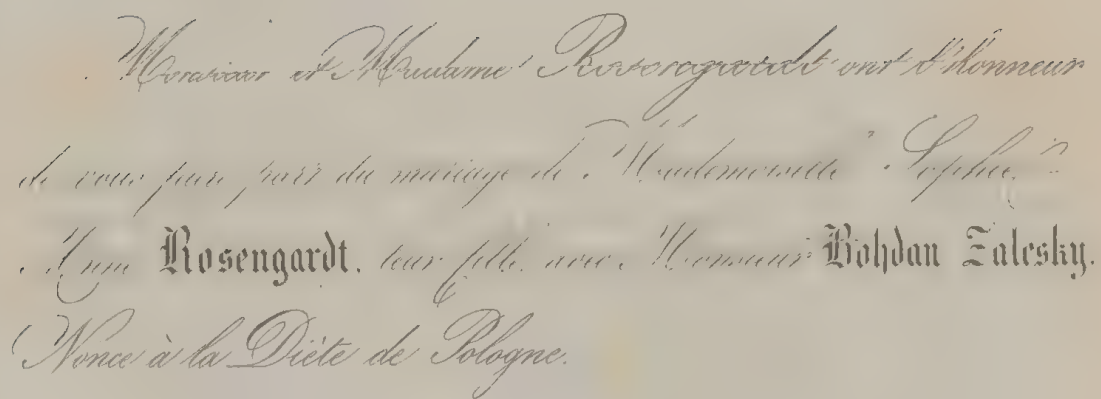 Monsieur et Madame Rosengardt ont l'honneur
de vous faire part du mariage de Mademoiselle Sophie
Anne Rosengardt, leur fille, avec Monsieur Bohdan Zalesky.
Nonce à la Diète de Pologne.